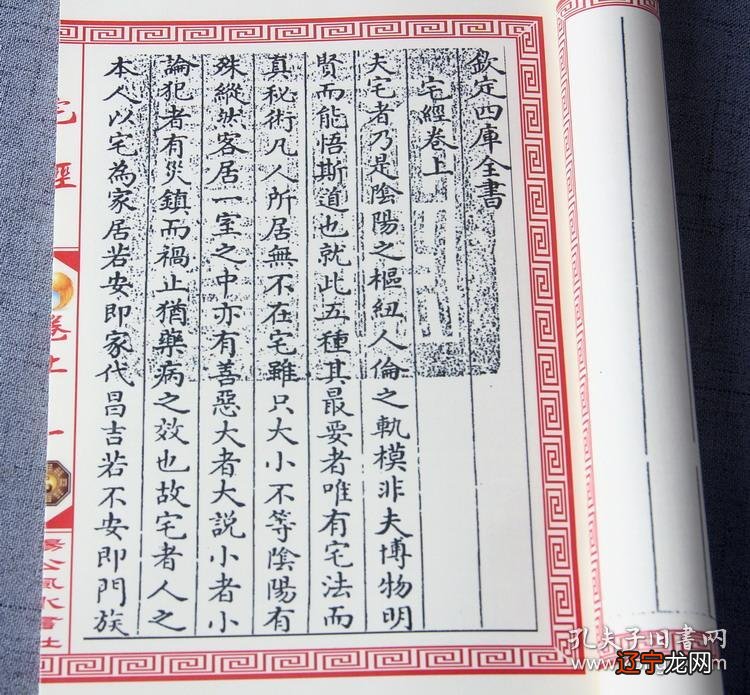 欽定四庫全書
宅經卷上
夫宅者乃是陰陽之樞紐人倫之軌模非夫博物明
賢而能悟斯道也就此五種其最要者唯有宅法而
真秘術凡人所居無不在宅雖只大小不等陰陽有
殊縱然客居一室之中亦有善惡大者大說小者小
論犯者有災鎮而禍止猶藥病之效也故宅者人之
本人以宅為家居若安即家代昌吉若不安即門族
宅經
卷上
一
楊公風水書社
孔夫子旧書网
辽宁龙网